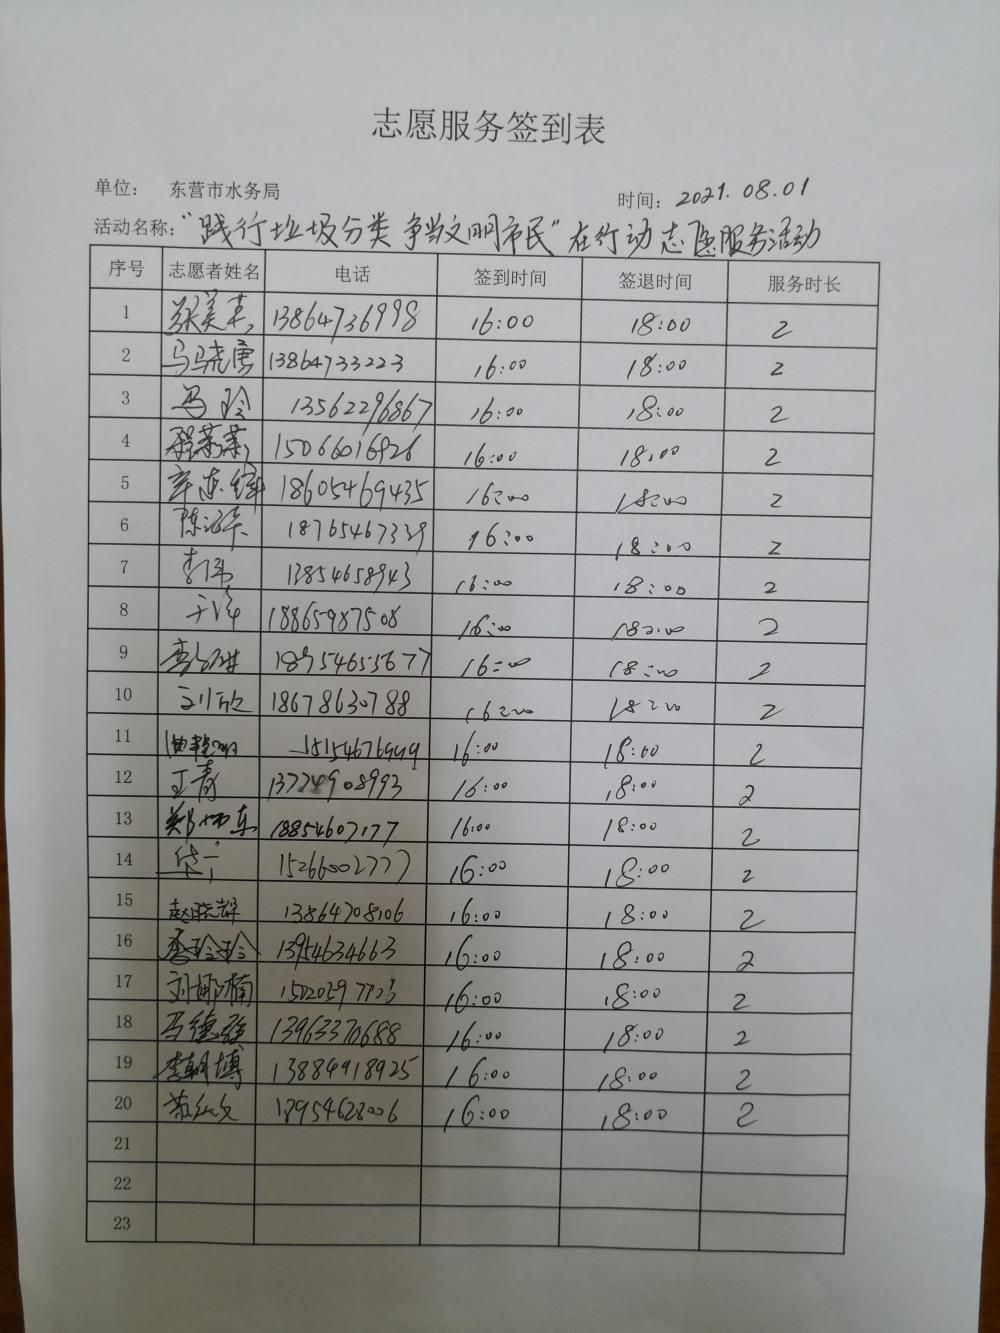 志愿服务签到表
单位: 东营市水务局 时间: 2021.08.01
活动名称: "践行垃圾分类 争当文明市民"在行动志愿服务活动
序号 志愿者姓名 电话 签到时间 签退时间 服务时长
1 13864736998 16:00 18:00 2
2 马晓唐 13864733223 16:00 18:00 2
3 马玲 13562296867 16:00 18:00 2
4 程莱莱 15066016926 16:00 18:00 2
5 18605469435 16:00 18:00 2
6 18765467339 16:00 18:00 2
7 李伟 13854658943 16:00 18:00 2
8 于洋 18865987508 16:00 18:00 2
9 18954655677 16:00 18:00 2
10 刘欣 18678630788 16:00 18:00 2
11 16:00 18:00 2
12 王青 16:00 18:00 2
13 18854607177 16:00 18:00 2
14 15266002777 16:00 18:00 2
15 赵晓辉 13864708106 16:00 18:00 2
16 李玲玲 13954634663 16:00 18:00 2
17 刘娜楠 16:00 18:00 2
18 马德强 13963370688 16:00 18:00 2
19 李朝博 13884918925 16:00 18:00 2
20 16:00 18:00 2
21
22
23